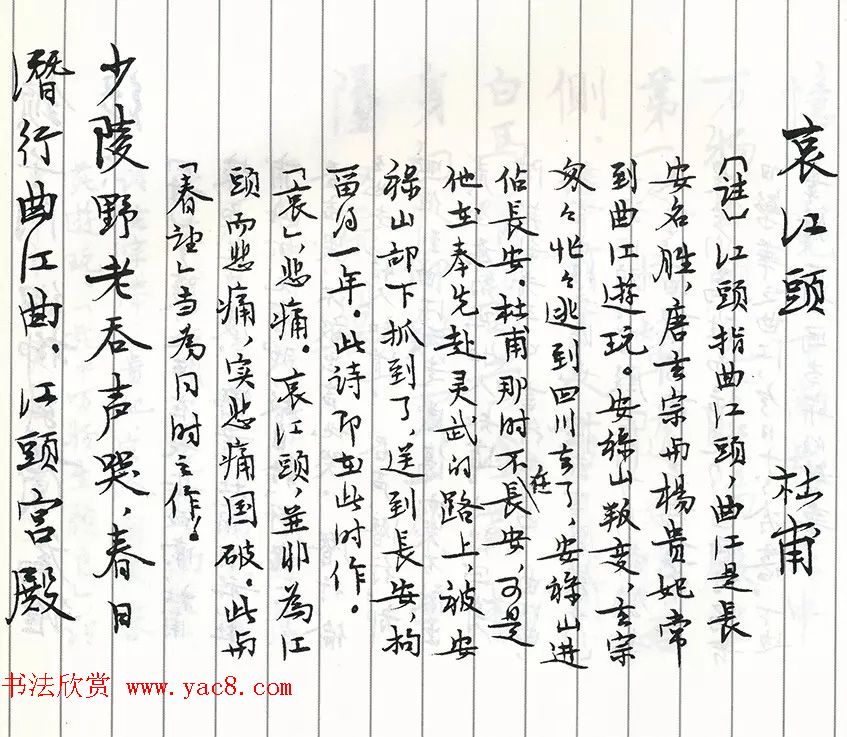 哀江頭 杜甫
「註」江頭指曲江頭，曲江是長
安名胜，唐玄宗与楊贵妃常
到曲江遊玩。安禄山叛变，玄宗
匆々忙々逃到四川去了，安禄山进
佔長安。杜甫那时不在長安，可是
他在奉先赴灵武的路上，被安
禄山部下抓到了，送到長安，拘
留了一年。此诗即在此时作。
「哀」，悲痛。哀江頭，並非為江
頭而悲痛，实悲痛国破。此与
「春望」当為同时之作！
少陵野老吞声哭，春日
潛行曲江曲．江頭宫殿
书法欣赏 www.yac8.com